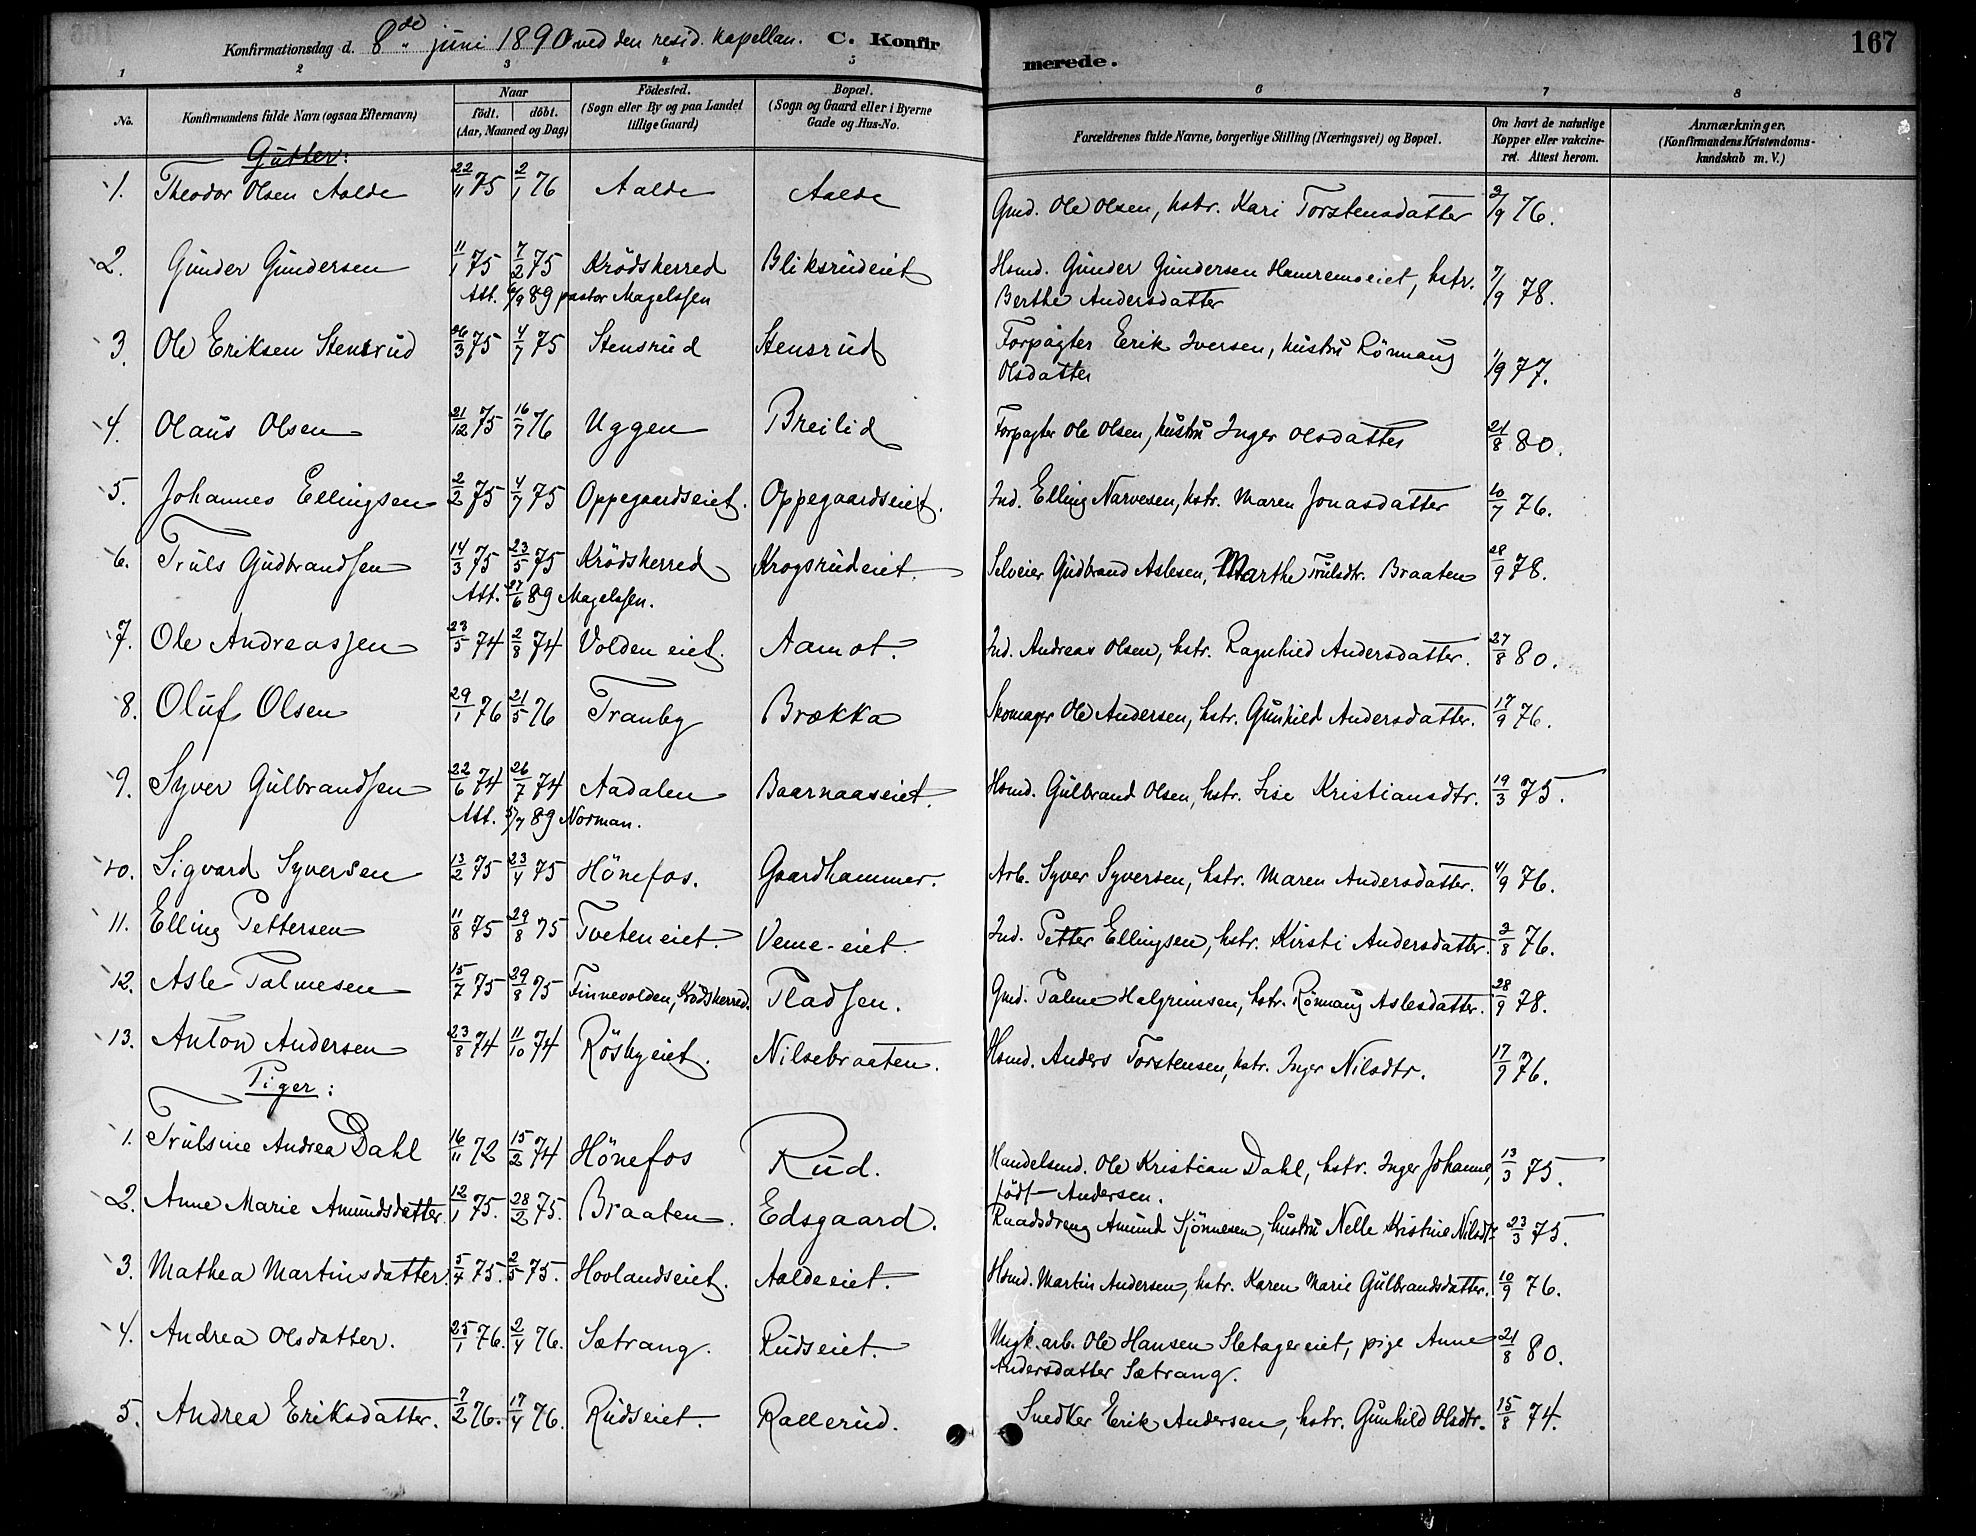 Konfirmationsdag d. 8de juni 1890 ved den resid. kapellan. C. Konfirmerede. 167
1 2 3 4 5 6 7 8
No. Konfirmandens fulde Navn (ogsaa Efternavn) Naar födt. döbt. (Aar, Maaned og Dag) Födested. (Sogn eller By og paa Landet tillige Gaard) Bopæl. (Sogn og Gaard eller i Byerne Gade og Hus-No. Forældrenes fulde Navne, borgerlige Stilling (Næringsvei) og Bopæl. Om havt de naturlige Kopper eller vakcineret. Attest herom. Anmærkninger. (Konfirmandens Kristendomskundskab m. V.)
Gutter:
1. Theodor Olsen Aalde 22/11 75 2/1 76 Aalde Aalde Gmd. Ole Olsen, hstr. Kari Torstensdatter 2/9 76.
2. Gunder Gundersen 11/1 75 7/2 75 Krödsherred Bliksrudeiet Hsmd. Gunder Gundersen Hamremoeiet, hstr. 7/9 78.
Att. 6/9 89 pastor Magelssen Berthe Andersdatter
3. Ole Eriksen Stensrud 26/3 75 4/7 75 Stensrud Stensrud Forpagter Erik Iversen, hustru Rönnaug 1/9 77.
Olsdatter
4. Olaus Olsen 21/12 75 16/7 76 Uggen Breilid Forpagter Ole Olsen, hustru Inger Olsdatter 21/8 80.
5. Johannes Ellingsen 2/2 75 4/7 75 Oppegaardseiet. Oppegaardseiet. Ind. Elling Narvesen, hstr. Maren Jonasdatter 10/7 76.
6. Truls Gudbrandsen 14/3 75 23/5 75 Krödsherred Krogsrudeiet. Selveier Gudbrand Aslesen, Marthe Trulsdtr. Braaten 28/9 78.
Att. 27/6 89 Magelssen.
7. Ole Andreassen 23/5 74 2/8 74 Volden eiet. Aamot. Ind. Andreas Olsen, hstr. Ragnhild Andersdatter. 27/8 80.
8. Oluf Olsen 29/1 76 21/5 76 Tranby Brækka Skomager Ole Andersen, hstr. Gunhild Andersdatter. 17/9 76.
9. Syver Gulbrandsen 22/6 74 26/7 74 Aadalen Baarnaaseiet. Hsmd. Gulbrand Olsen, hstr. Lise Kristiansdtr. 19/3 75.
Att. 5/7 89 Norman.
10. Sigvard Syversen 13/2 75 23/4 75 Hönefos. Gaardhammer. Arb. Syver Syversen, hstr. Maren Andersdatter. 4/9 76.
11. Elling Pettersen 11/8 75 29/8 75 Tveten eiet. Veme-eiet. Ind. Petter Ellingsen, hstr. Kirsti Andersdatter. 2/8 76.
12. Asle Palmesen 15/7 75 29/8 75 Finnevolden, Krödsherred. Pladsen. Gmd. Palme Halgrimsen, hstr. Rönnaug Aslesdatter. 28/9 78.
13. Anton Andersen 23/8 74 11/10 74 Rösbyeiet. Nilsebraaten. Hsmd. Anders Torstensen, hstr. Inger Nilsdtr. 17/9 76.
Piger:
1. Trulsine Andrea Dahl 16/11 72 15/2 74 Hönefos Rud. Handelsmd. Ole Kristian Dahl, hstr. Inger Johanne, 13/3 75.
födt Andersen.
2. Anne Marie Amundsdatter 12/1 75. 28/2 75. Braaten. Edsgaard. Raadsdreng Amund Sjönnesen, hustru Nelle Kristine Nilsdtr 23/3 75.
3. Mathea Martinsdatter. 5/4 75. 2/5 75. Hovlandseiet. Aaldeeiet. Hsmd. Martin Andersen, hstr. Karen Marie Gulbrandsdatter. 10/9 76.
4. Andrea Olsdatter. 25/1 76. 2/4 76. Sætrang. Rudseiet. Ungk. arb. Ole Hansen Sletagereiet, pige Anne 21/8 80.
Andersdatter Sætrang.
5. Andrea Eriksdatter. 7/2 76. 17/4 76. Rudseiet. Rallerud. Snedker Erik Andersen, hstr. Gunhild Olsdtr. 15/8 74.